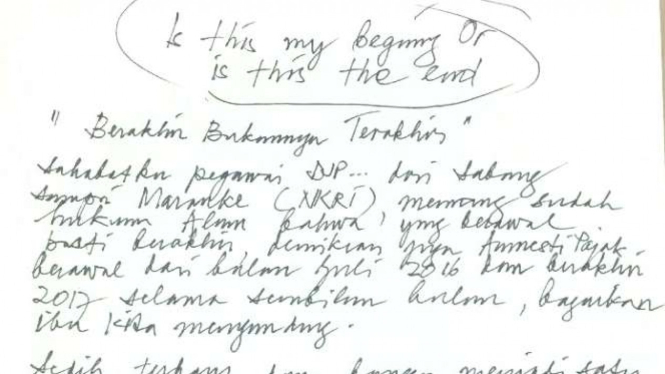 Is this my begining Or
is this the end
" Berakhir Bukannya Terakhir "
Sahabatku pegawai DJP... dari Sabang
sampai Maranke (NKRI) memang sudah
hukum Alam bahwa, yang berawal
pasti berakhir demikian nya Amnesti Pajak
berawal dari bulan Juli 2016 dan berakhir
2017 selama sembilan bulan, bagaikan
ibu kita mengandung.
Sedih terharu dan bangga menjadi satu